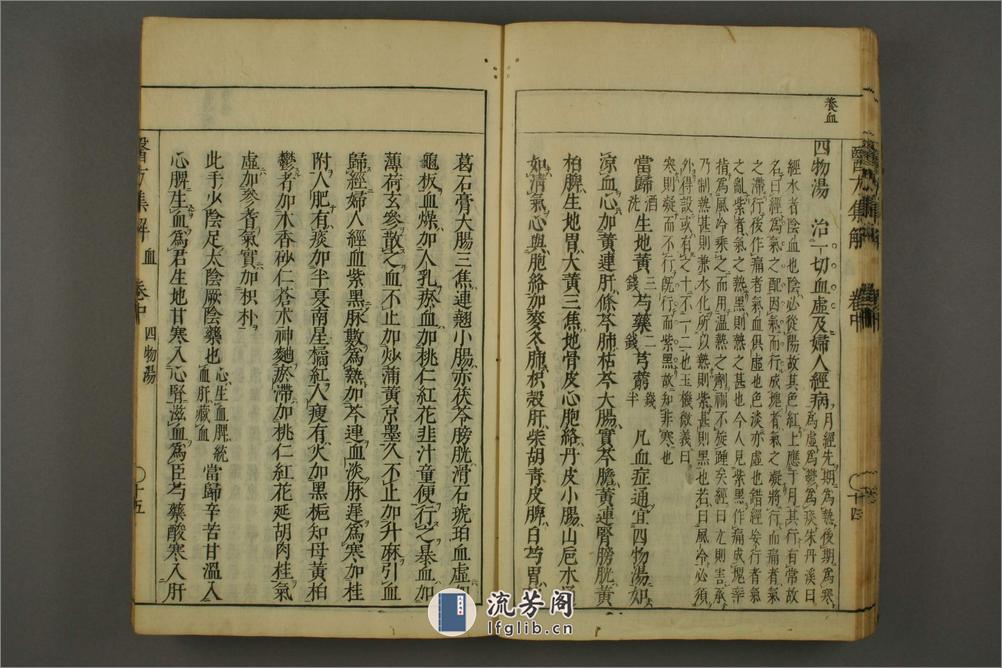 養血
醫方集解 卷中 十四
四物湯 治一切血虛及婦人經病
月經先期為熱後期為寒
為虛為鬱為痰朱丹溪曰
經水者陰血也陰必從陽故其色紅上應于月其行有常故
名曰經為氣之配因氣而行成塊者氣之凝將行而痛者氣
之滯行後作痛者氣血俱虛也色淡亦虛也錯經妄行者氣
之亂紫者氣之熱黑則熱之甚也今人見紫黑作痛成塊率
指為風冷乘之而用溫熱之劑禍不旋踵矣經曰亢則害承
乃制熱甚則兼水化所以熱則紫甚則黑也若曰風冷必須
外得設或有之十不一二也玉機微義曰
寒則凝而不行旣行而紫黑故知非寒也
當歸酒洗生地黃三錢芍藥二錢芎藭錢半 凡血症通宜四物湯如
涼血心加黃連肝條芩肺枯芩大腸實芩膽黃連腎膀胱黃
柏脾生地胃大黃三焦地骨皮心胞絡丹皮小腸山梔木通
如清氣心與胞絡加麥冬肺枳殼肝柴胡青皮脾白芍胃
葛石膏大腸三焦連翹小腸赤茯苓膀胱滑石琥珀血虛加
龜板血燥加人乳瘀血加桃仁紅花韭汁童便行之暴血加
薄荷玄參散之血不止加炒蒲黃京墨久不止加升麻引血
歸經婦人經血紫黑脈數為熱加芩連血淡脈遲為寒加桂
附人肥有痰加半夏南星橘紅人瘦有火加黑梔知母黃柏
鬱者加木香砂仁蒼朮神麴瘀滯加桃仁紅花延胡肉桂氣
虛加參芪氣實加枳朴
此手少陰足太陰厥陰藥也心生血脾統血肝藏血當歸辛苦甘溫入
心脾生血為君生地甘寒入心腎滋血為臣芍藥酸寒入肝
醫方集解 血 卷中 四物湯 十五
流芳阁
lfglib.cn